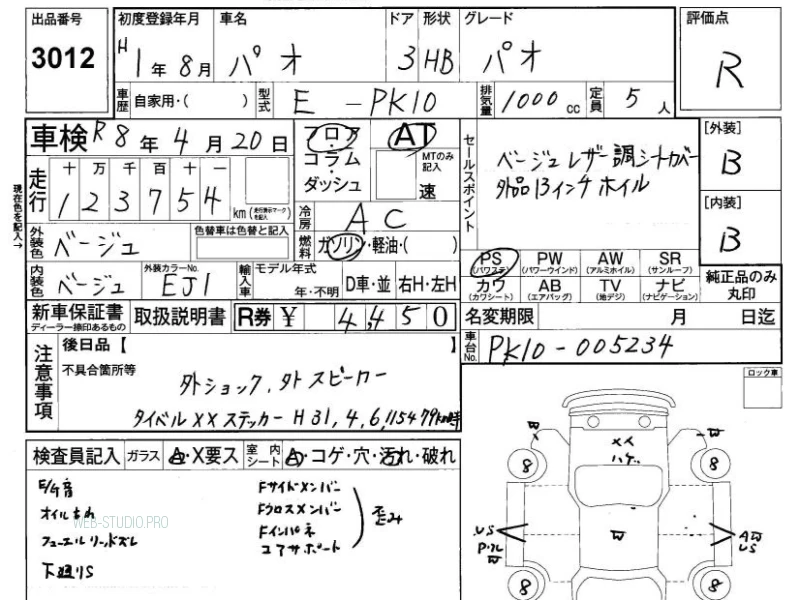 出品番号 初度登録年月 車名 ドア 形状 グレード 評価点
3012 H1年8月 パオ 3 HB パオ R
車歴 自家用・( ) 型式 E-PK10 排気量 1000cc 定員 5人
車検 R8年4月20日 フロア・コラム・ダッシュ AT MTのみ記入 速
セールスポイント ベージュレザー調シートカバー
外品13インチホイル
[外装] B
[内装] B
現在色を記入→
走行 十 万 千 百 十 一
123754 km (走行表示マークを記入)
冷房 AC
外装色 ベージュ 色替車は色替と記入 燃料 ガソリン・軽油・( )
PS (パワステ) PW (パワーウインド) AW (アルミホイル) SR (サンルーフ)
カワ (カワシート) AB (エアバッグ) TV (地デジ) ナビ (ナビゲーション) 純正品のみ丸印
内装色 ベージュ 外装カラーNo. EJ1 輸入車 モデル年式 年・不明 D車・並 右H・左H
新車保証書 ディーラー捺印あるもの 取扱説明書 R券 ¥ 4,450 名変期限 月 日迄
車台No. PK10-005234
注意事項 後日品【 】
不具合箇所等
外ショック、外スピーカー
タイベルxxステッカー H31,4,6,115479km時
ロック車
検査員記入 ガラス A・X要ス 室内シート A・コゲ・穴・汚れ・破れ
E/G音 Fサイドメンバー
オイルもれ Fクロスメンバー
フューエルリッドズレ Fインパネ
コアサポート 歪み
下廻りS
WEB-STUDIO.PRO
W W
XX
ハゲ
8 8
US W AW
P.ル US
W
8 8